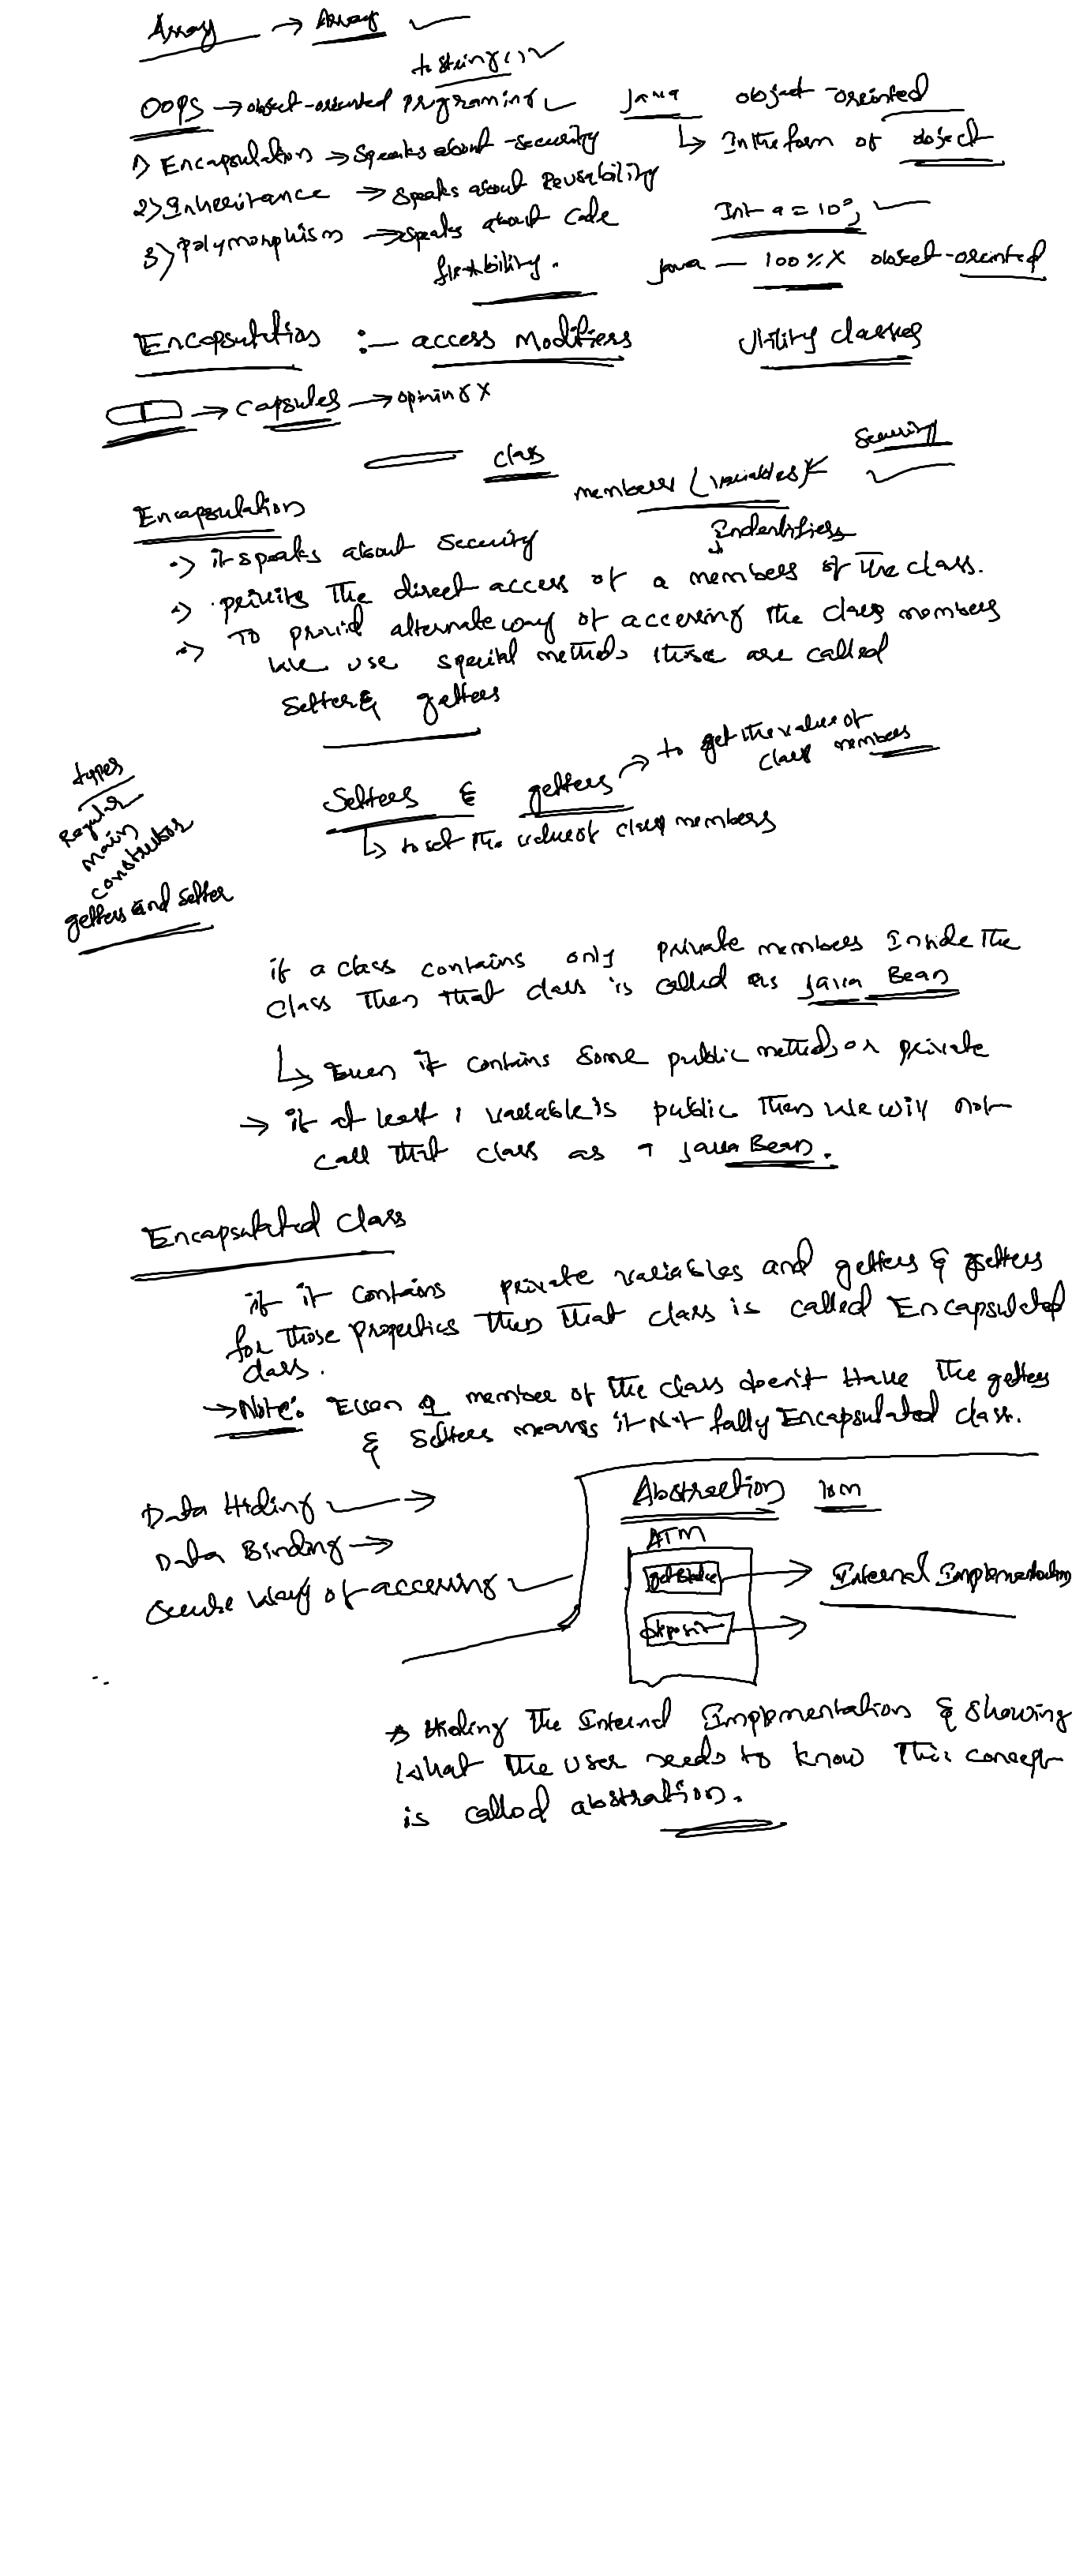 Array → Array
toString()
OOPS → object-oriented programing Java object-oreinted
↳ In the form of object
1) Encapsulation → Speaks about security
2) Inheritance → speaks about Reusability
3) Polymorphism → speaks about code
flexibility.
Int a = 10;
Java — 100% X object-oreinted
Encapsulation :- access Modifiers Utility classes
→ capsules → opining X
class
members (variables) Security
Indentifiers
Encapsulation
it speaks about Security
the direct access of a members of the class.
To provid alternate way of accessing the class members
we use special methods those are called
Setters & getters
Setters & getters → to get the value of
class members
↳ to set the value of class members
types
Regular
main
constructor
getters and setter
if a class contains only private members Inside the
class then that class is called as Java Bean
↳ Even if contains some public methods or private
→ if at least 1 variable is public then we will not
call that class as a Java Bean.
Encapsulated class
if it contains private variables and getters & setters
for those properties then that class is called Encapsulated
class.
→ Note: Even 1 member of the class doen't have the getters
& setters means it Not fully Encapsulated class.
Data Hiding →
Data Binding →
Secure way of accessing
Abstraction 10m
ATM
→ Internal Implementation
deposit →
→ Hiding the Internal Implementation & showing
what the user needs to know this concept
is called abstration.